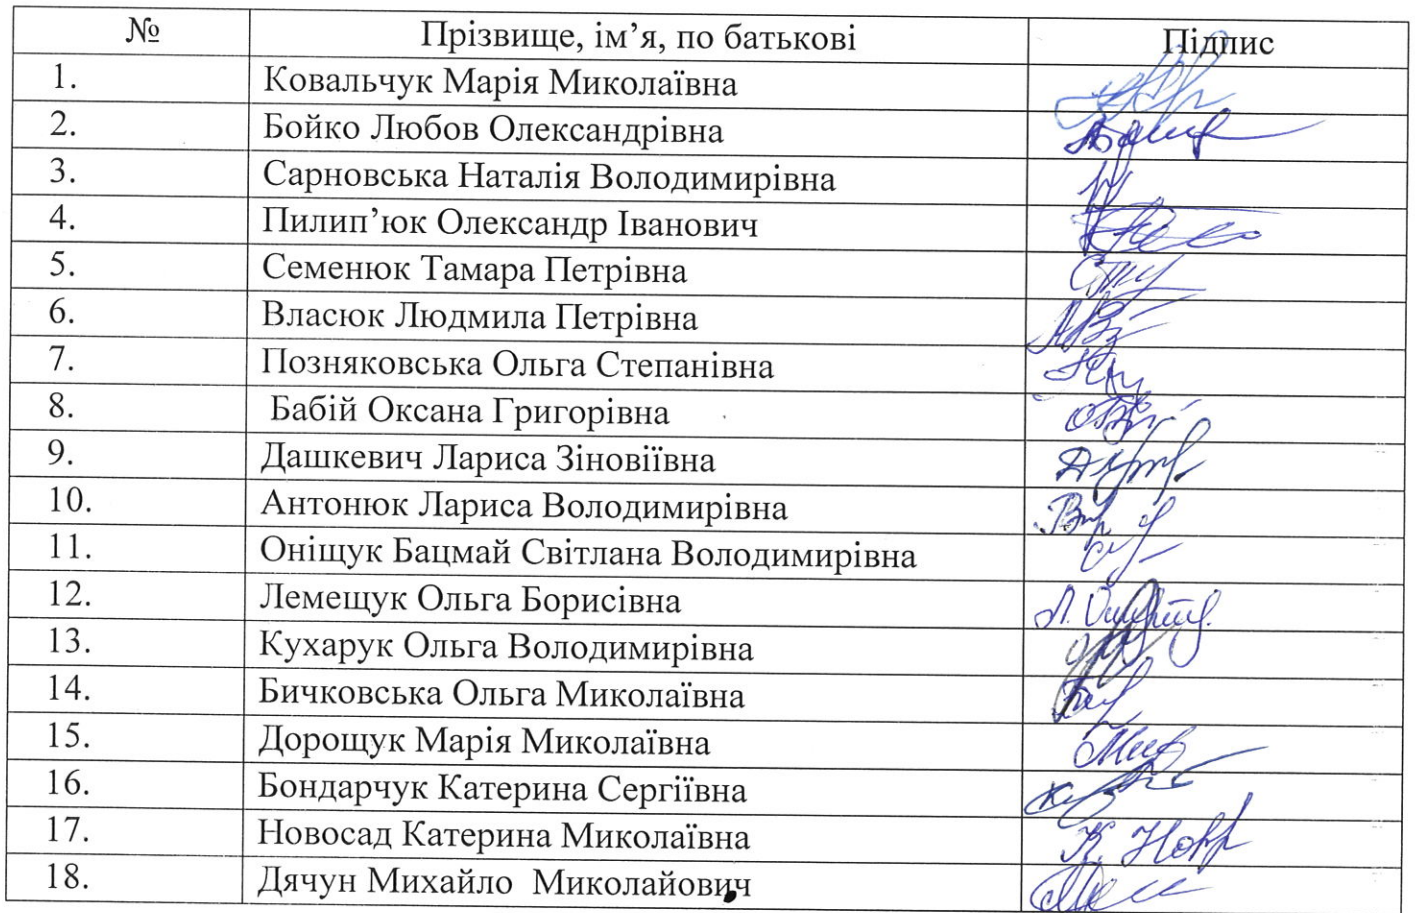 № Прізвище, ім’я, по батькові Підпис
1. Ковальчук Марія Миколаївна
2. Бойко Любов Олександрівна
3. Сарновська Наталія Володимирівна
4. Пилип’юк Олександр Іванович
5. Семенюк Тамара Петрівна
6. Власюк Людмила Петрівна
7. Позняковська Ольга Степанівна
8. Бабій Оксана Григорівна
9. Дашкевич Лариса Зіновіївна
10. Антонюк Лариса Володимирівна
11. Оніщук Бацмай Світлана Володимирівна
12. Лемещук Ольга Борисівна
13. Кухарук Ольга Володимирівна
14. Бичковська Ольга Миколаївна
15. Дорощук Марія Миколаївна
16. Бондарчук Катерина Сергіївна
17. Новосад Катерина Миколаївна
18. Дячун Михайло Миколайович